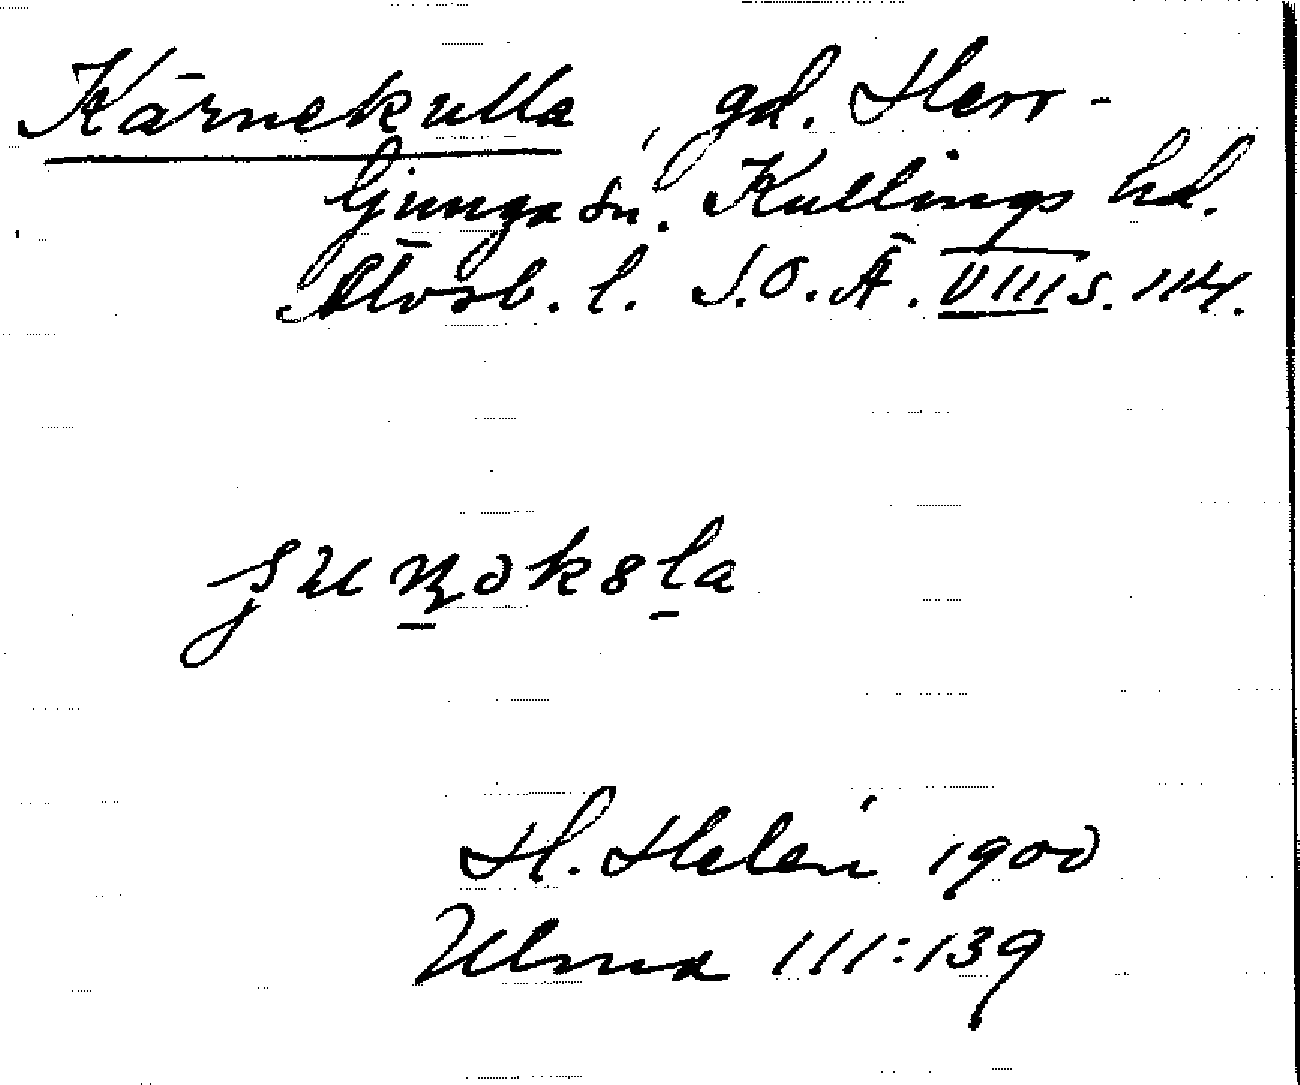 Kärnekulla, gd. Herr-
ljunga sn. Kullings hd.
Älvsb. l. S.O.Ä. VIII s. 114.
H. Helén 1900
Ulma 111:139